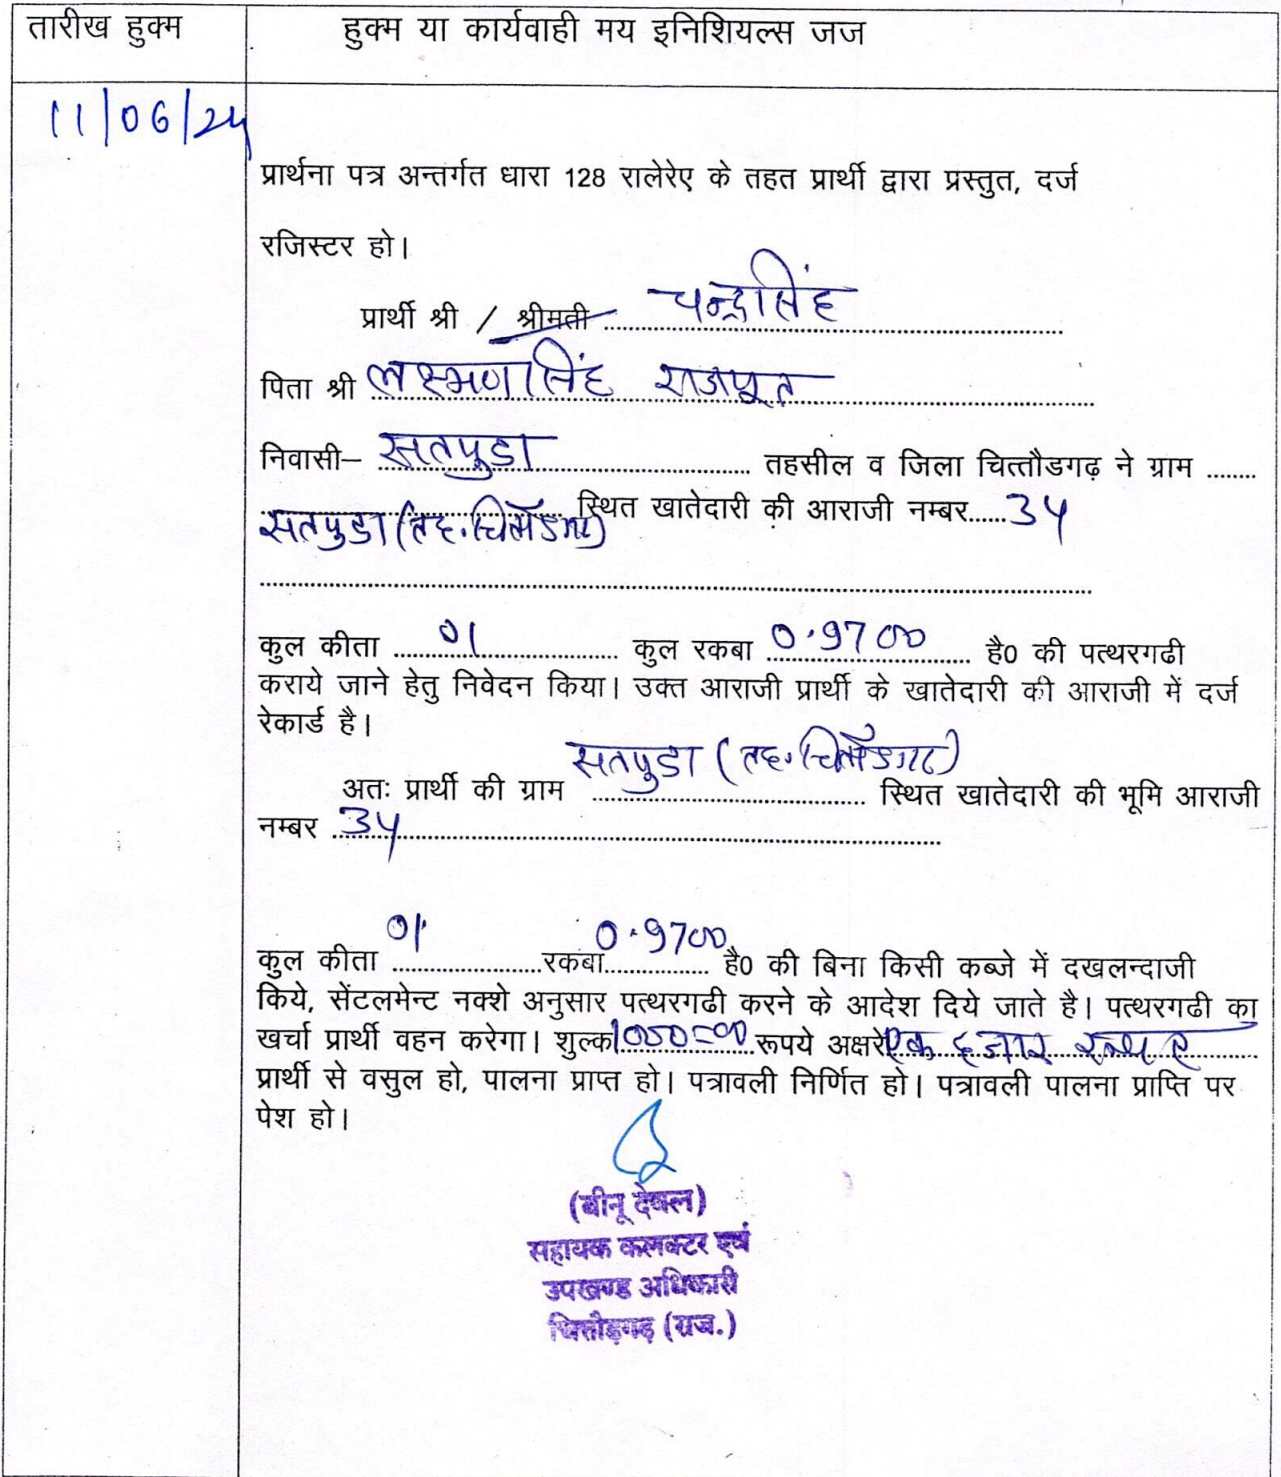 तारीख हुक्म
हुक्म या कार्यवाही मय इनिशियल्स जज
11/06/24
प्रार्थना पत्र अन्तर्गत धारा 128 रालेरेए के तहत प्रार्थी द्वारा प्रस्तुत, दर्ज
रजिस्टर हो।
प्रार्थी श्री / श्रीमती चन्द्रसिंह
पिता श्री लक्ष्मणसिंह राजपूत
निवासी– सतपुडा तहसील व जिला चित्तौडगढ़ ने ग्राम ........
सतपुडा (तह.चित्तौडगढ) स्थित खातेदारी की आराजी नम्बर......34
कुल कीता 01 कुल रकबा 0.9700 है0 की पत्थरगढी
कराये जाने हेतु निवेदन किया। उक्त आराजी प्रार्थी के खातेदारी की आराजी में दर्ज
रेकार्ड है।
अतः प्रार्थी की ग्राम सतपुडा (तह.चित्तौडगढ) स्थित खातेदारी की भूमि आराजी
नम्बर 34
कुल कीता 01 रकबा 0.9700 है0 की बिना किसी कब्जे में दखलन्दाजी
किये, सेंटलमेन्ट नक्शे अनुसार पत्थरगढी करने के आदेश दिये जाते है। पत्थरगढी का
खर्चा प्रार्थी वहन करेगा। शुल्क 1000=00 रूपये अक्षरे एक हजार रूपए
प्रार्थी से वसुल हो, पालना प्राप्त हो। पत्रावली निर्णित हो। पत्रावली पालना प्राप्ति पर
पेश हो।
(बीनू देवल)
सहायक कलक्टर एवं
उपखण्ड अधिकारी
चित्तौड़गढ़ (राज.)